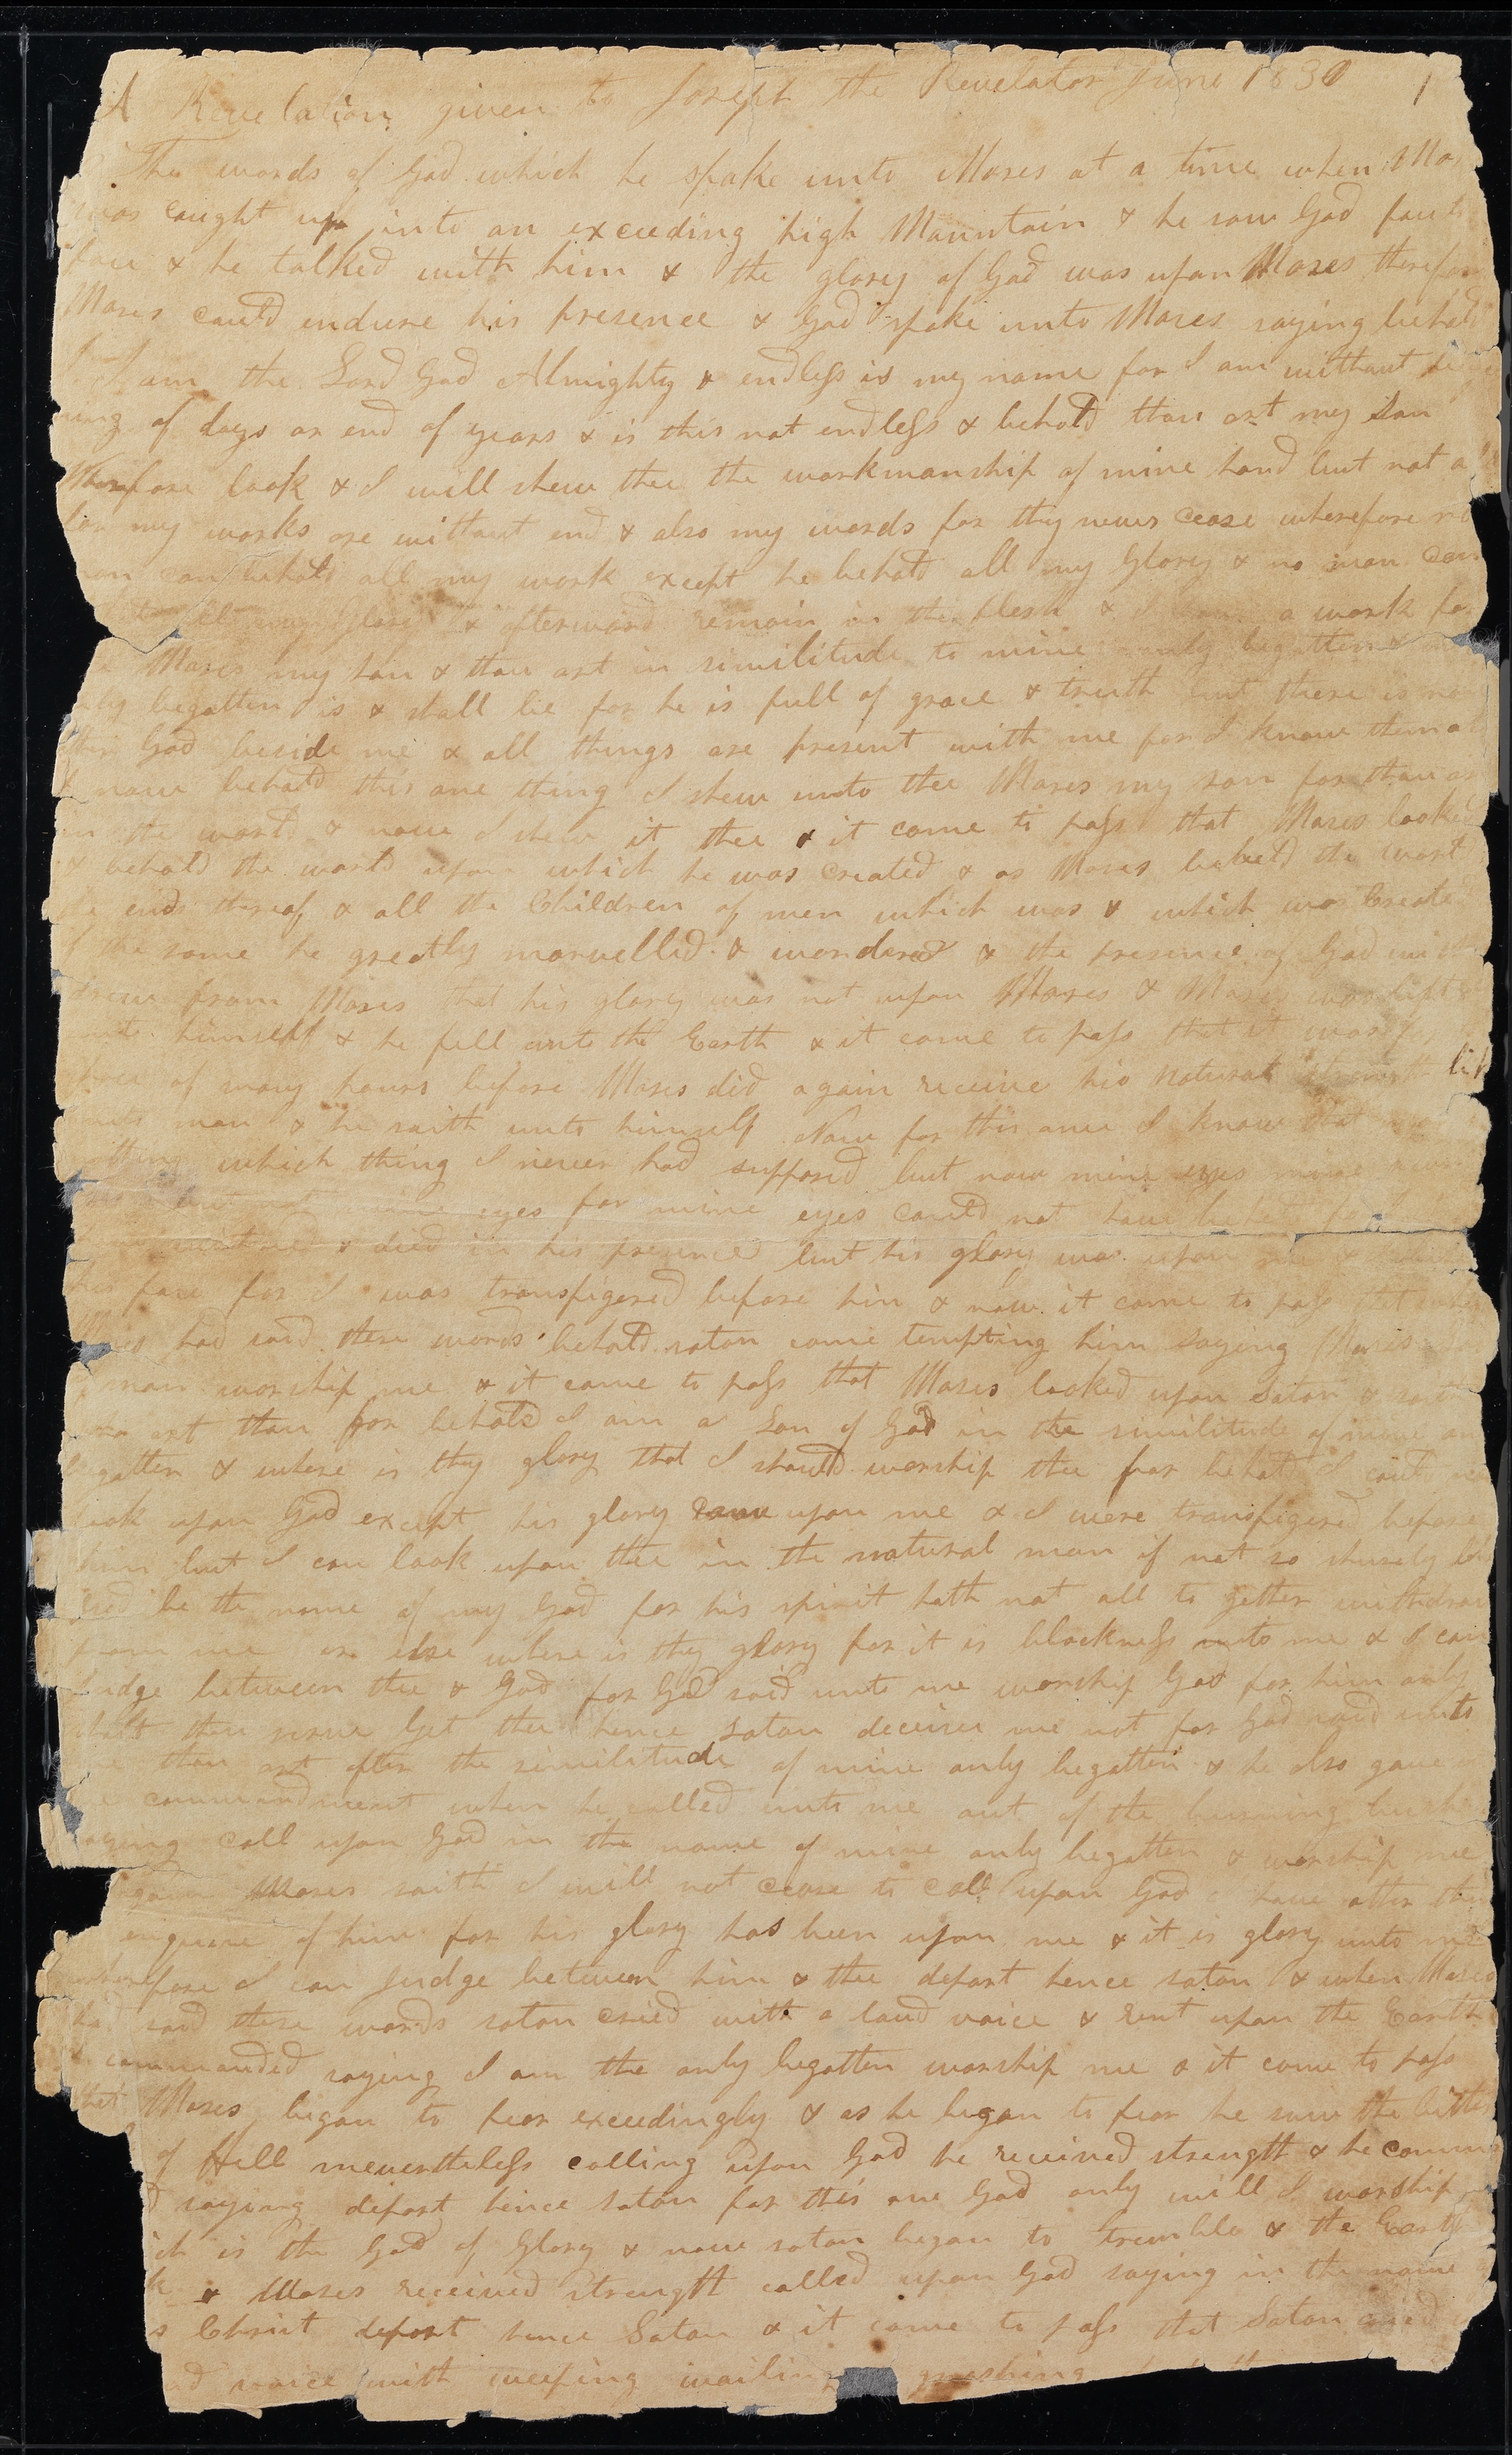 A Revelation given to Joseph the Revelator June 1830 1
The words of God which he spake unto Moses at a time when Mo
was caught up into an exceeding high Mountain & he saw God face to
face & he talked with him & the glory of God was upon Moses therefore
Moses could endure his presence & God spake unto Moses saying behold
I am the Lord God Almighty & endless is my name for I am without begin
ing of days or end of years & is this not endless & behold thou art my Son
Wherefore look & I will shew thee the workmanship of mine hand but not a
for my works are without end & also my words for they never cease wherefore no
man can behold all my work except he behold all my Glory & no man can
all my Glory & afterwards remain in the flesh & I a work for
Moses my Son & thou art in similitude to mine only begotten &
only begotten is & shall be for he is full of grace & truth but there is no
God beside me & all things are present with me for I know them al
& now behold this one thing I shew unto thee Moses my son for thou ar
in the world & now I shew it thee & it came to pass that Moses looked
& beheld the world upon which he was created & as Moses beheld the world
ends thereof & all the Children of men which was & which was Created
of the same he greatly marvelled & wondered & the presence of God with
drew from Moses that his glory was not upon Moses & Moses was left
unto himself & he fell unto the Earth & it came to pass that it was
space of many hours before Moses did again receive his natural strength lik
unto man & he saith unto himself Now for this once I know that
nothing which thing I never had supposed but now mine eyes mine
but not mine eyes for mine eyes could not have beheld for I
& died in his presence but his glory was upon me &
his face for I was transfigered before him & now it came to pass that when
Moses had said these words behold satan came tempting him saying Moses
man worship me & it came to pass that Moses looked upon Satan & saith
who art thou for behold I am a Son of God in the similitude of mine on
begotten & where is thy glory that I should worship thee for behold I could no
look upon God except his glory came upon me & I were transfigered before
him but I can look upon thee in the natural man if not so shurely bl
be the name of my God for his spirit hath not all to gether withdraw
from me or else where is thy glory for it is blackness unto me & I can
Judge between thee & God for God said unto me worship God for him only
shalt thou serve Get thee hence Satan deceive me not for God said unto
me thou art after the similitude of mine only begotten & he also gave
commandment when he called unto me out of the burning bush
saying Call upon God in the name of mine only begotten & worship me
again Moses saith I will not cease to Call upon God I have other thi
inquire of him for his glory has been upon me & it is glory unto me
wherefore I can Judge between him & thee depart hence satan & when Moses
had said these words satan cried with a loud voice & rent upon the Earth
& commanded saying I am the only begotten worship me & it came to pass
that Moses began to fear exceedingly & as he began to fear he saw the bitter
of Hell nevertheless calling upon God he received strength & he comman
d saying depart hence satan for this one God only will I worship
ich is the God of Glory & now satan began to tremble & the Earth
k & Moses received strength called upon God saying in the name
s Christ depart hence Satan & it came to pass that Satan cried
ud voice with weeping wailing gnashing